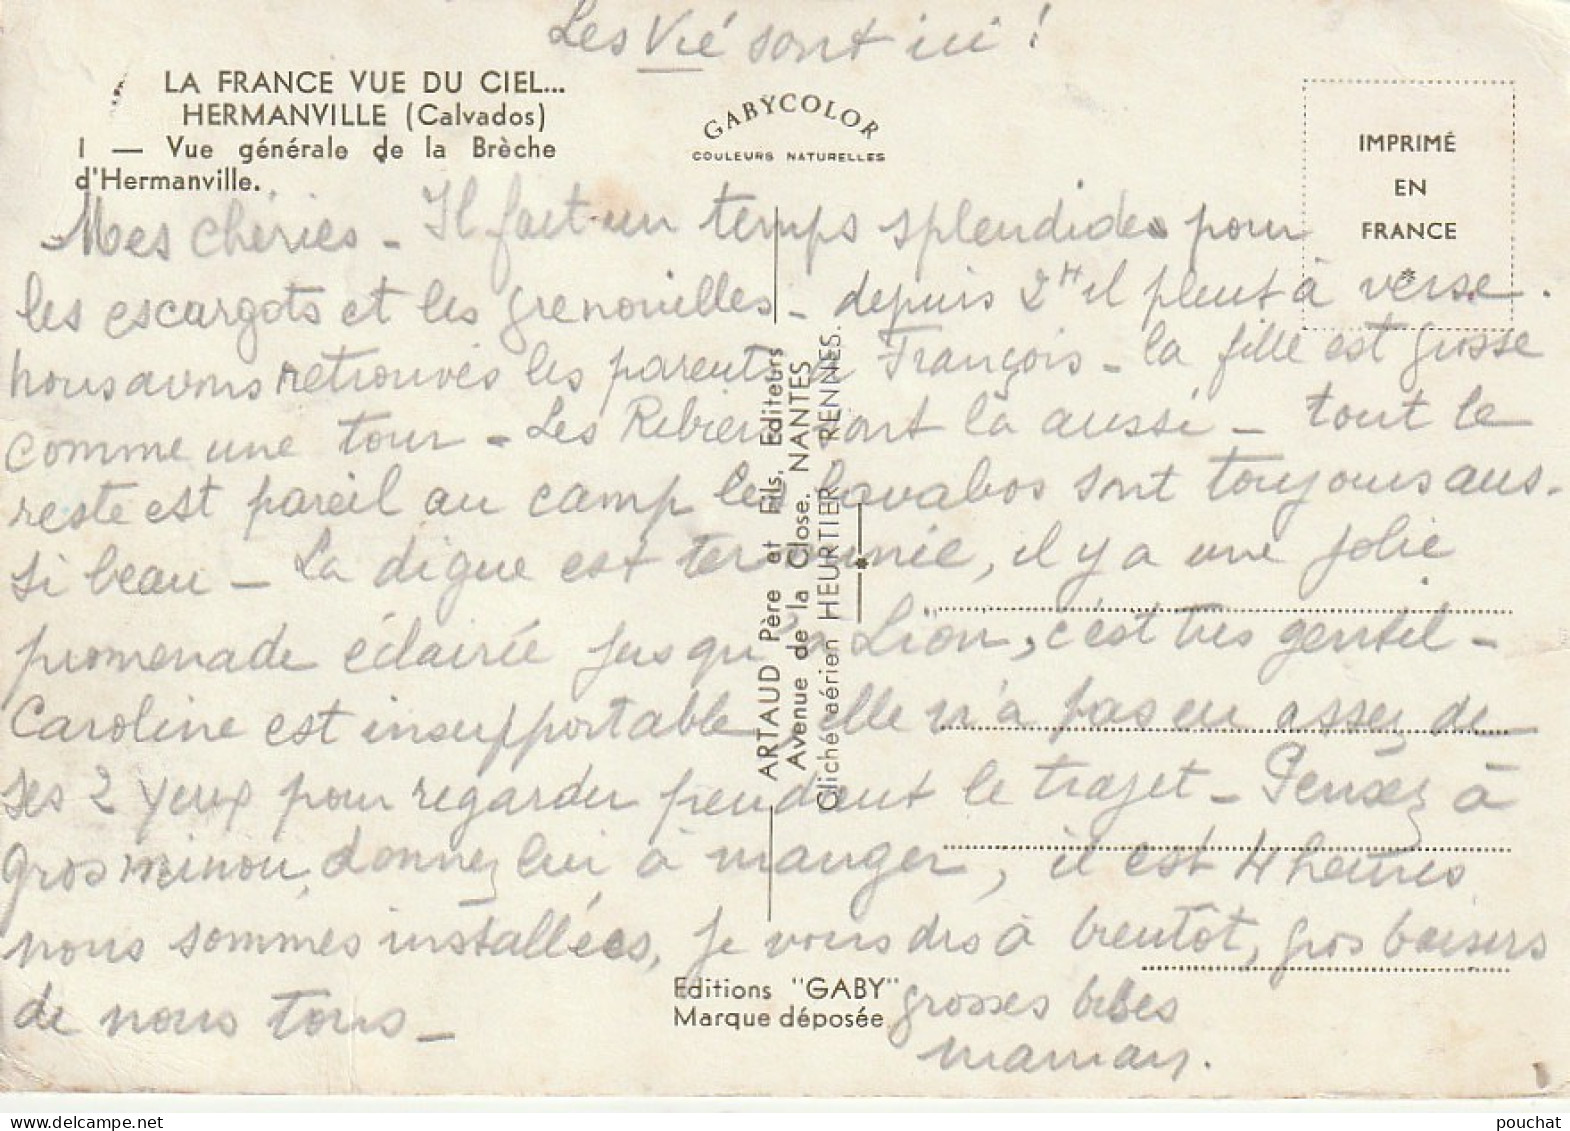 Les Vié sont ici !
LA FRANCE VUE DU CIEL...
HERMANVILLE (Calvados)
1 — Vue générale de la Brèche
d'Hermanville.
GABYCOLOR
COULEURS NATURELLES
IMPRIMÉ
EN
FRANCE
Mes chéries - Il fait un temps splendides pour
les escargots et les grenouilles - depuis 2H il pleut à verse.
nous avons retrouvés les parents à François - la fille est grosse
comme une tour - Les Ribiers sont là aussi - tout le
reste est pareil au camp les lavabos sont toujours aus-
si beau - La digue est terminée, il y a une jolie
promenade éclairée jusqu'à Lïon, c'est très gentil -
Caroline est insupportable, elle n'a pas eu assez de
ses 2 yeux pour regarder pendant le trajet - Pensez à
gros minou, donnez lui à manger, il est 4 heures
nous sommes installées, je vous dis à bientôt, gros baisers
de nous tous -
grosses bibes
maman.
ARTAUD Père et Fils, Editeurs
Avenue de la Close. NANTES
Cliché aérien HEURTIER RENNES.
Editions "GABY"
Marque déposée
pouchat